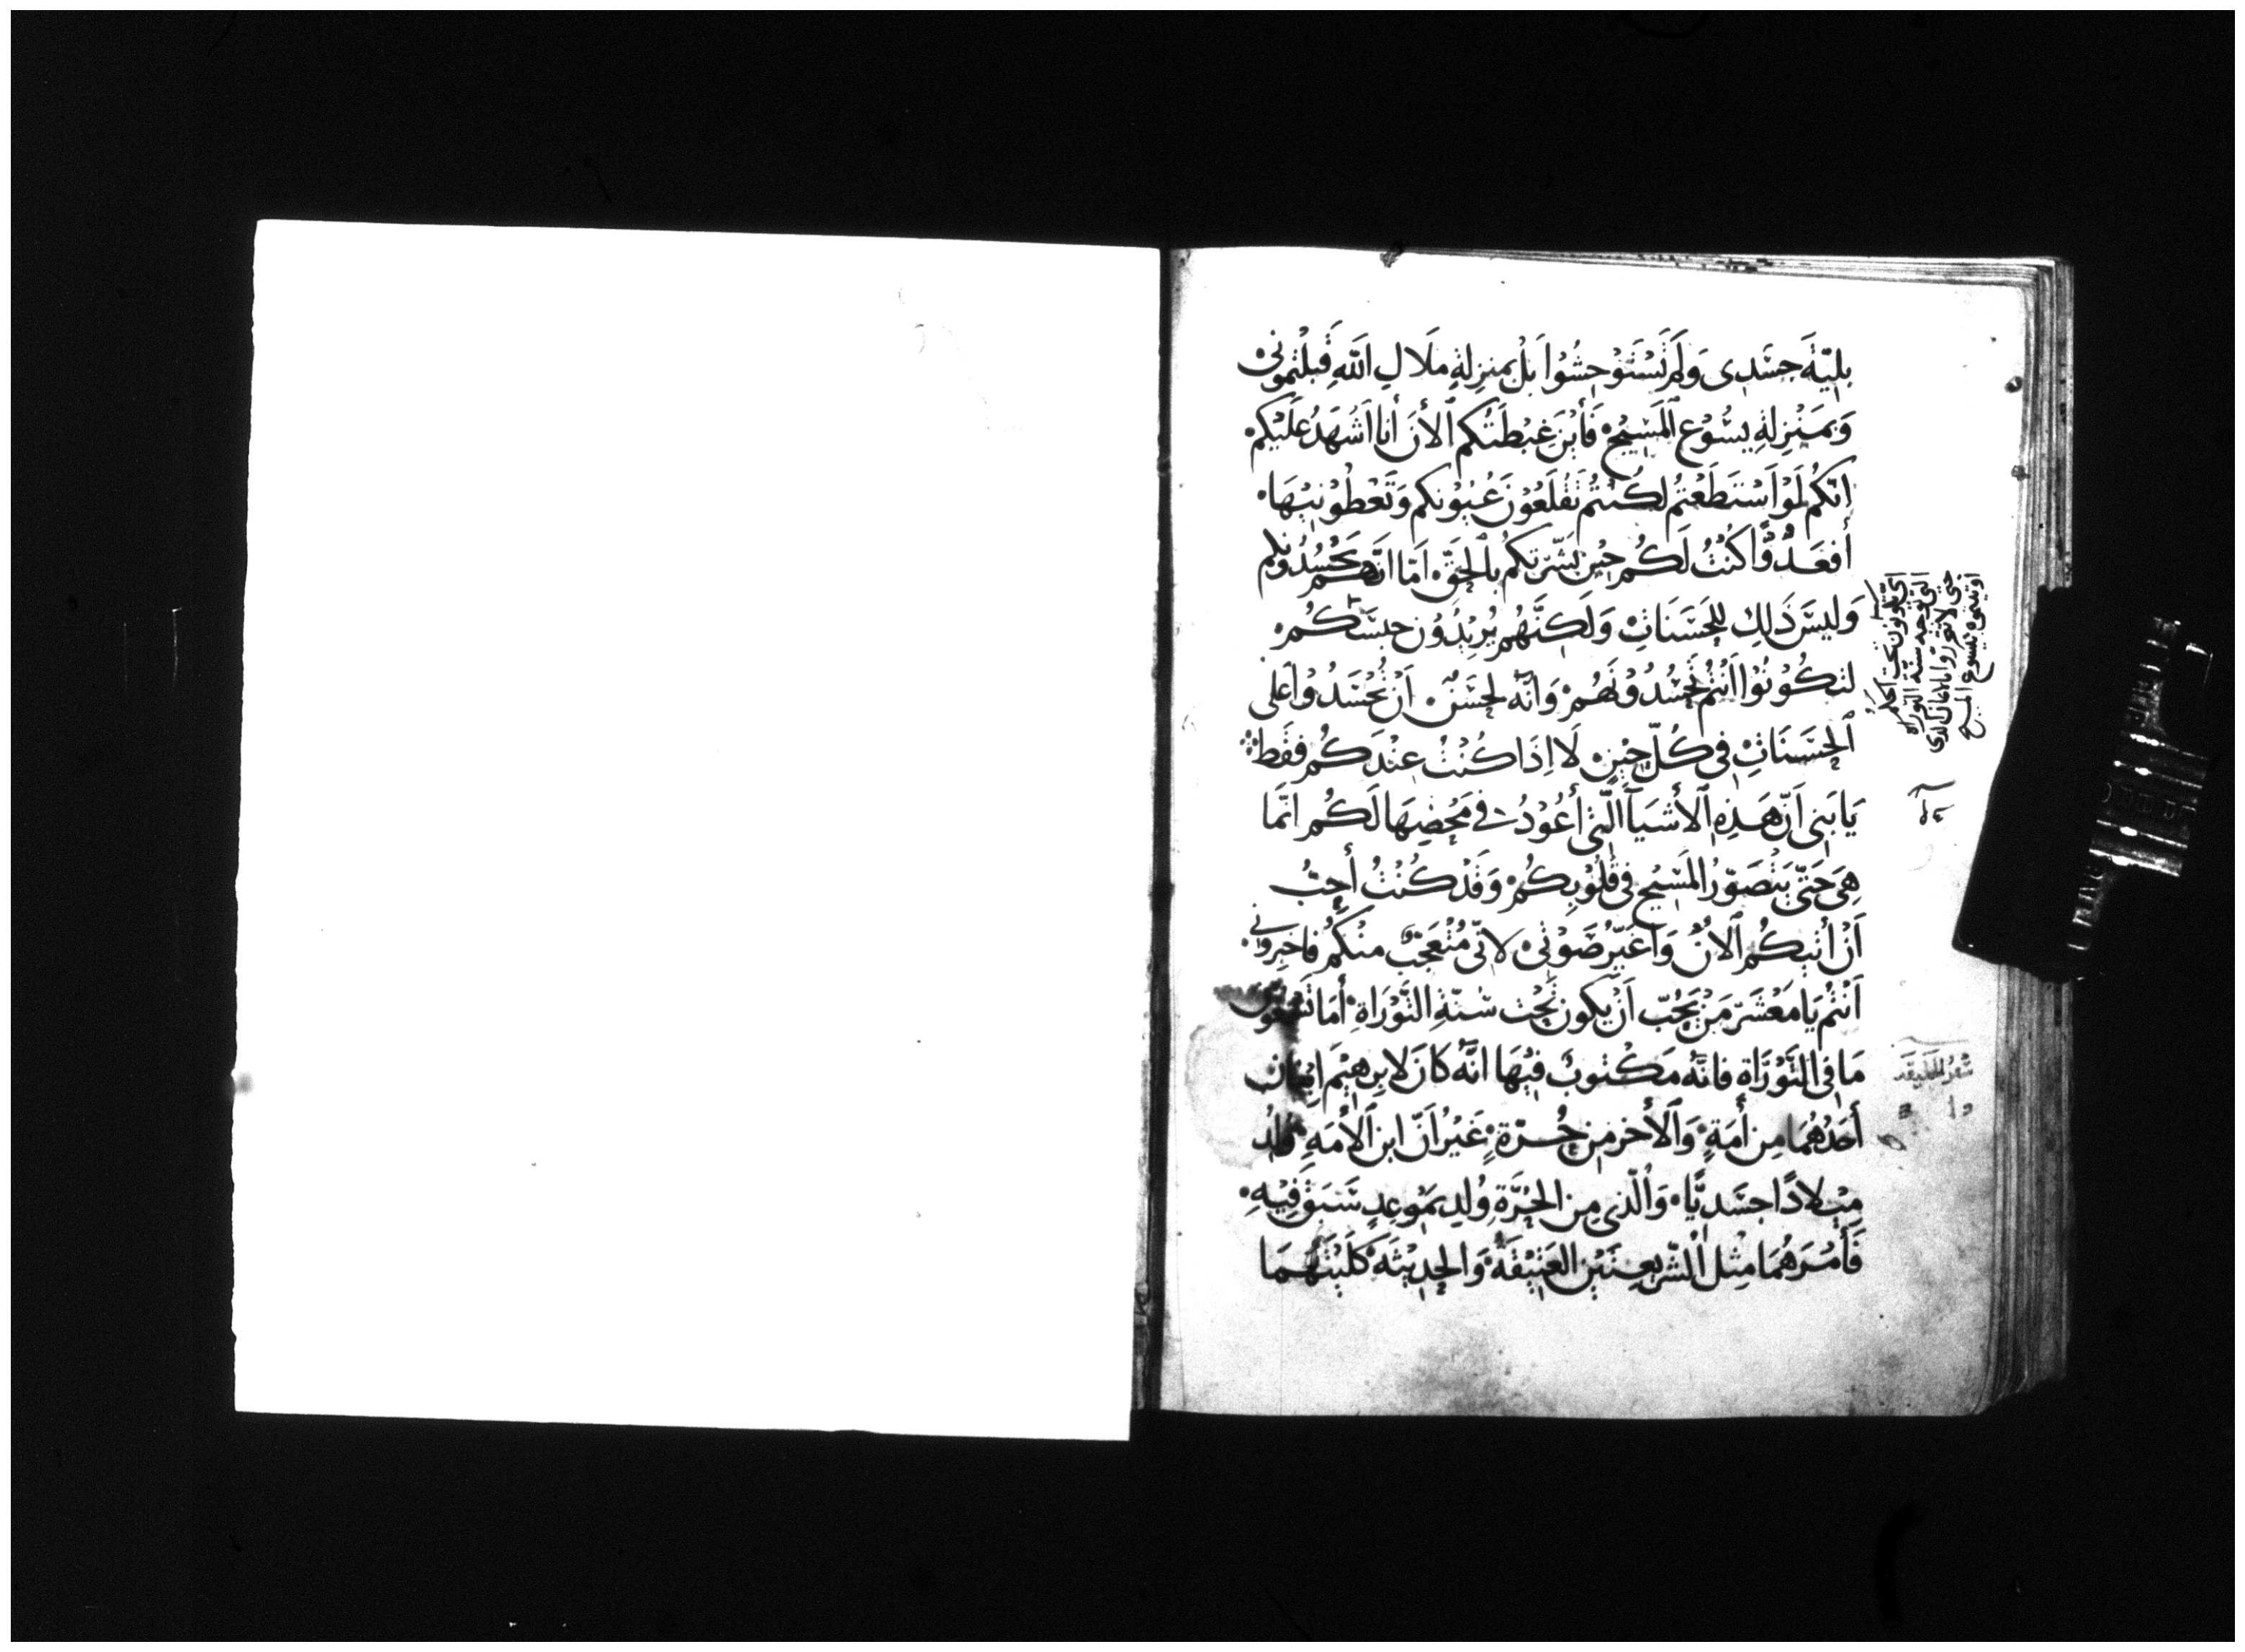 بِليّةَ جسَدِى وَلَمْ تَسْتَوْحِشُوا بَلْ بمنزِلةِ ملَاكِ اللهِ قَبِلْتمونى
وَبمَنْزِلةِ يسُوْع المَسيْح فَأَيْنَ غِبْطَتُكم الأنَ أنا أشْهَدُ عَلَيْكم
انّكمْ لَوْ اَسْتطَعْتم لكُنْتُمْ تَقْلَعُوْنَ عُيُوْنكم وَتَعْطُوْننِيْهَا
أفَعَدُوًّا كُنْتُ لَكُم حِيْن بَشّرْتكُم بالحَقّ امّا انَّهم يَحْسُدُونكم
وَليسَ ذَلِك لِلحَسَنَاتِ وَلَكِنَّهُم يُرِيْدُوْن حبسَكُم
لتكُوْنُوْا اَنْتُم تحْسُدُوْنَهُمْ وَانّه لحَسَنٌ اَنْ تُحْسَدُوْا عَلى
الحَسَنَاتِ فى كُلّ حِيْنٍ لَا اِذَا كُنْتُ عِنْدَكُم فقَط
يَابَنِى اَنّ هَذِهِ الأشيَآ الّتى أعُوْدُ فى مَحْضِهَا لَكُم انّمَا
هِىَ حَتّى يتَصَوّرُ المَسِيْح فى قُلُوْبِكُمْ وَقَدْ كُنْتُ أُحِبُّ
اَنْ أتيكُم الاَنْ وَاُغَيّرُ صَوْتىْ لاَنّى مُتعَجّبٌ منْكُم فاخبِرونى
اَنْتُم يَا مَعْشَرَ مَنْ يُحِبّ اَنْ يكون تحْت سُنّةِ التَّوْرَاةِ أمَا تَسْمَعُوْن
مَا فى التَّوْرَاة فانّهُ مَكْتوبٌ فيْهَا انّه كانَ لابرهِيْمَ ابْنَان
أحَدُهُمَا مِن أَمَةٍ وَالأخر مِن حُرّةٍ غَيْرُ اَنّ ابن الأَمَةِ وُلِدُ
مِيْلادًا جسَدِيًّا وَالّذى مِن الحُرّةِ وُلِد بمَوْعِدٍ سَبَقَ فِيْهِ
فَأَمْرَهُمَا مِثْل الشّرِيعتَيْنِ العَتِيْقَةْ وَالحَدِيْثَهْ كلَيْتَهُمَا
اى تكونون تحت الحكم
التى توجبه سنّة التوراه
حتى لا تقرّوا بالايمان الذى
اوتيتموه بيسوع المسيح
سفر الخليقه